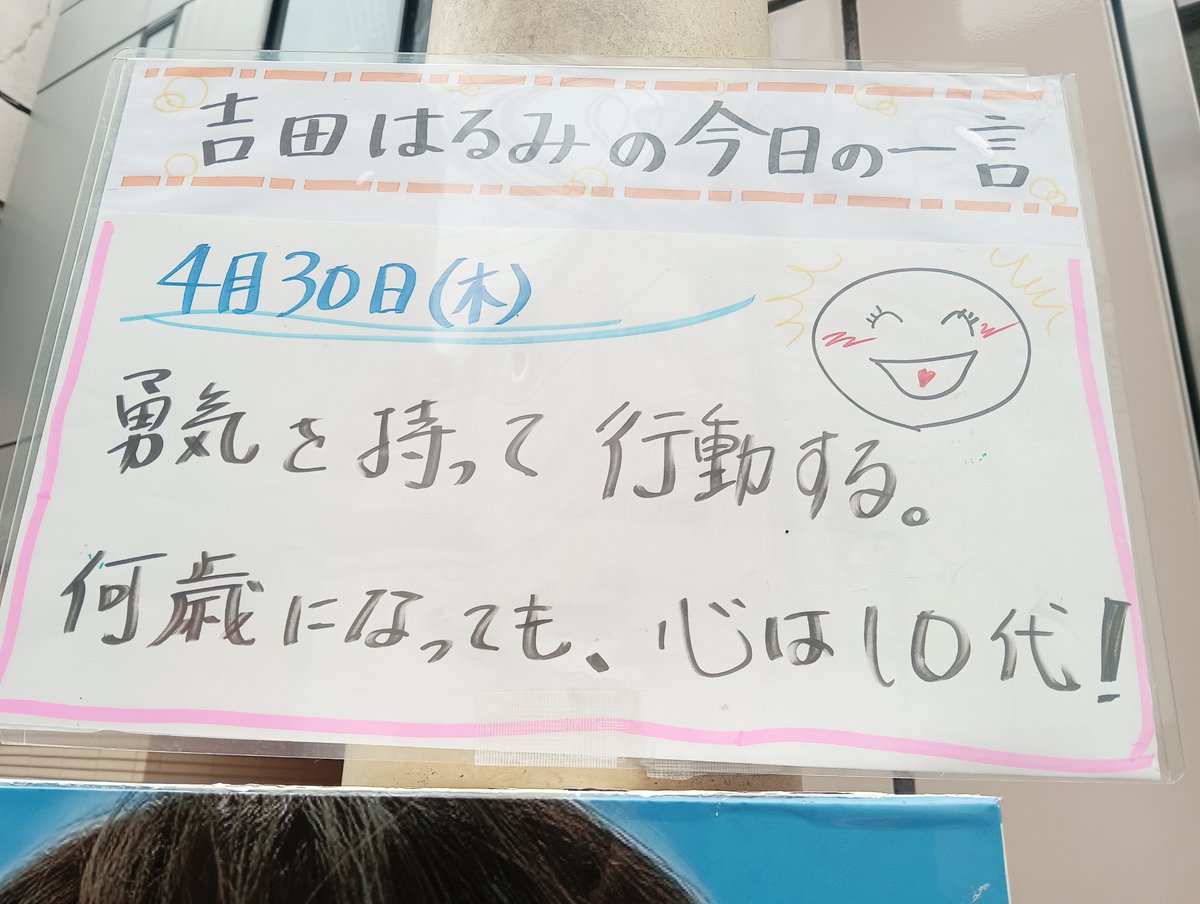 吉田はるみの今日の一言
4月30日(木)
勇気を持って行動する。
何歳になっても、心は10代!